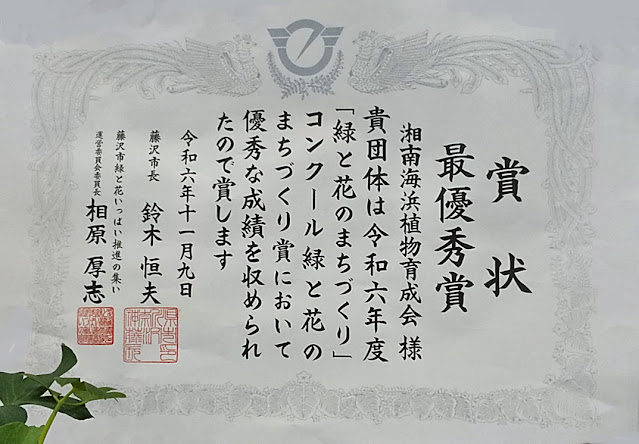 賞状
最優秀賞
湘南海浜植物育成会 様
貴団体は令和六年度
「緑と花のまちづくり」
コンクール緑と花の
まちづくり賞において
優秀な成績を収められ
たので賞します
令和六年十一月九日
藤沢市長 鈴木恒夫
藤沢市緑と花いっぱい推進の集い
運営委員会委員長 相原厚志